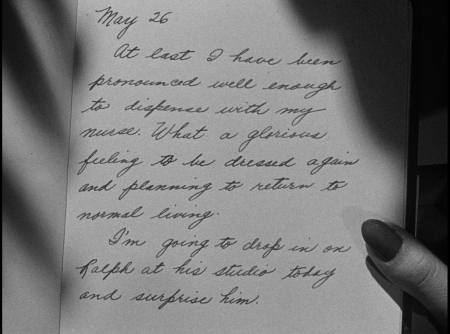 May 26
At last I have been
pronounced well enough
to dispense with my
nurse. What a glorious
feeling to be dressed again
and planning to return to
normal living.
I'm going to drop in on
Ralph at his studio today
and surprise him.